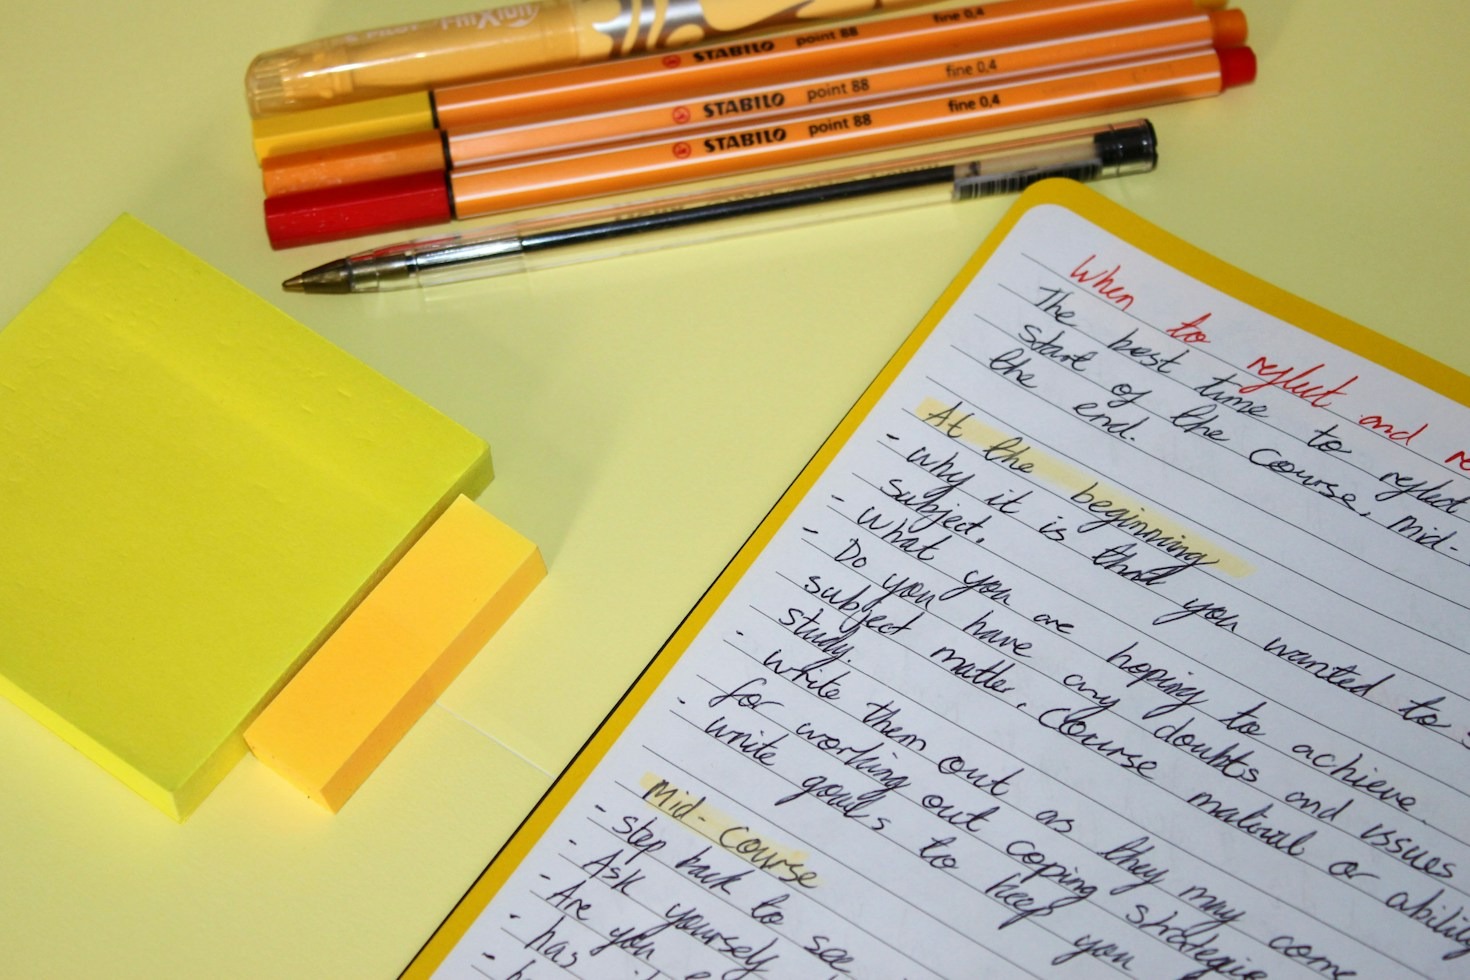 PILOT FriXion
STABILO point 88 fine 0,4
STABILO point 88 fine 0,4
STABILO point 88 fine 0,4
When to reflect and
The best time to reflect
start of the course, mid-
the end.
At the beginning
- why it is that you wanted to
subject.
- What you are hoping to achieve.
- Do you have any doubts and issues
subject matter, course material or
study.
- write them out as they may
for working out coping strategies
- write goals to keep you
Mid-Course
- step back to see
- Ask yourself
- Are you
- has